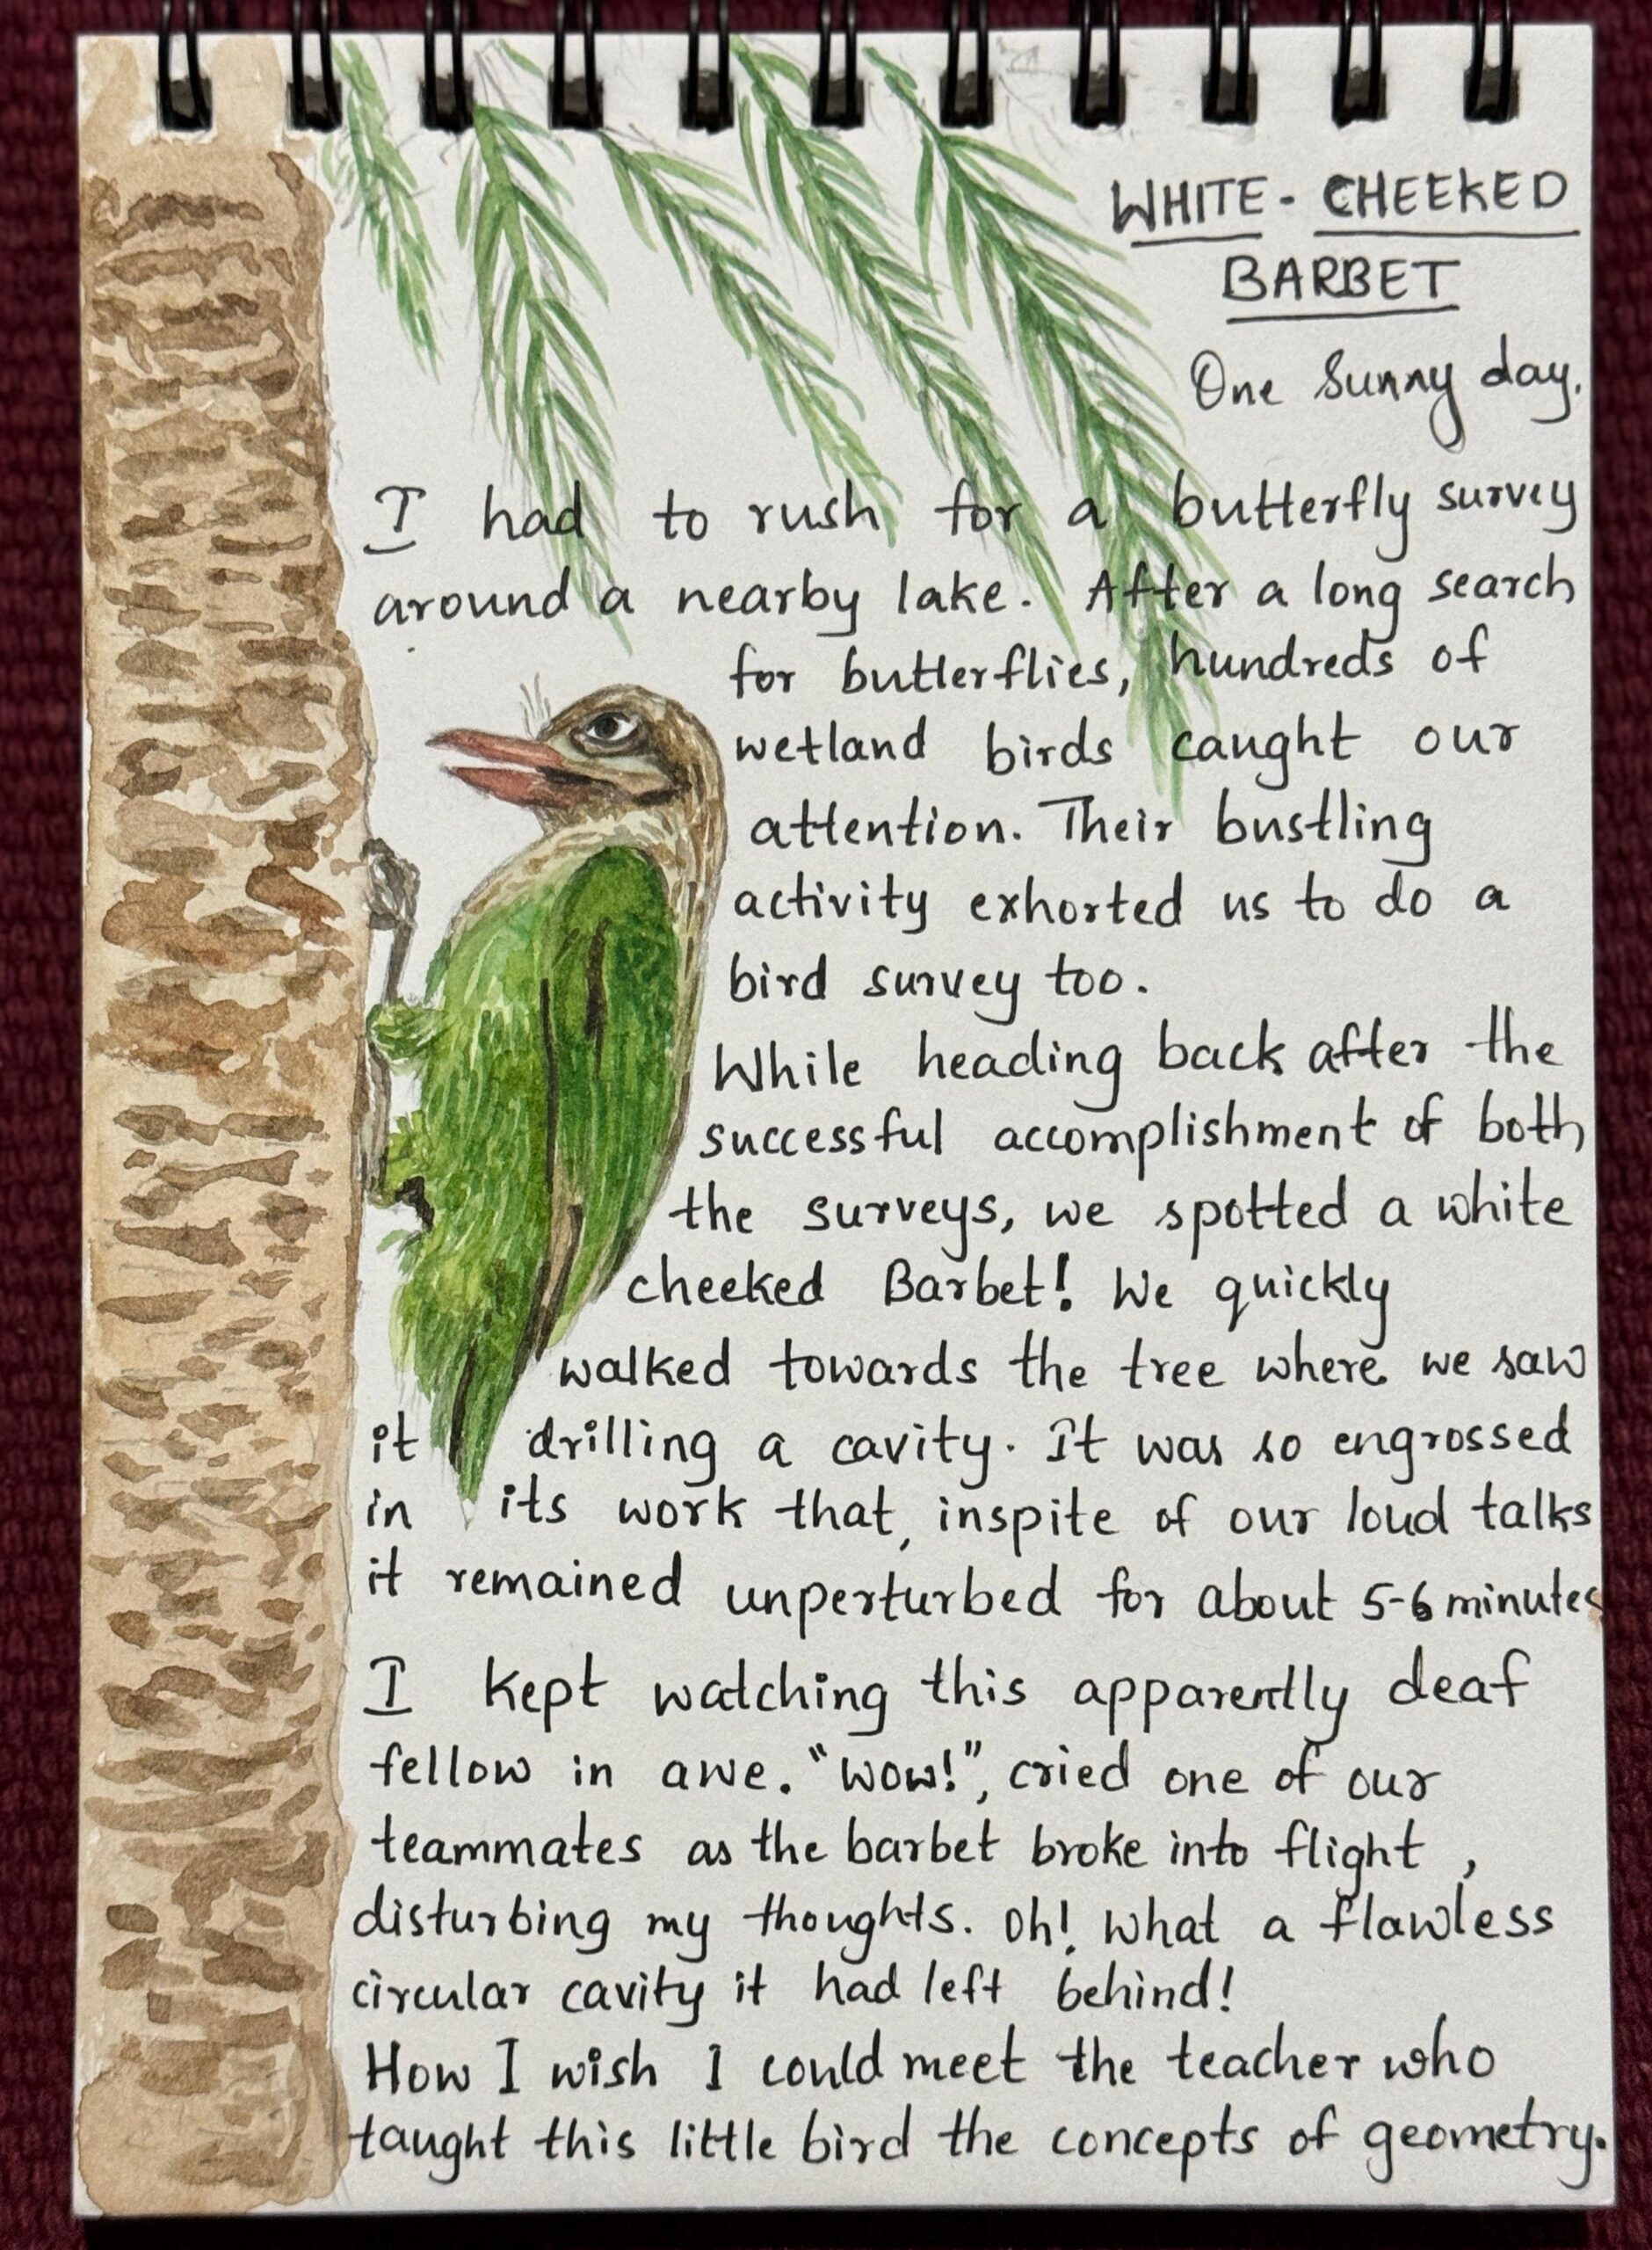 WHITE - CHEEKED
BARBET
One sunny day,
I had to rush for a butterfly survey
around a nearby lake. After a long search
for butterflies, hundreds of
wetland birds caught our
attention. Their bustling
activity exhorted us to do a
bird survey too.
While heading back after the
successful accomplishment of both
the surveys, we spotted a white
cheeked Barbet! We quickly
walked towards the tree where we saw
it drilling a cavity. It was so engrossed
in its work that, inspite of our loud talks
it remained unperturbed for about 5-6 minutes
I kept watching this apparently deaf
fellow in awe. "Wow!", cried one of our
teammates as the barbet broke into flight,
disturbing my thoughts. Oh! what a flawless
circular cavity it had left behind!
How I wish I could meet the teacher who
taught this little bird the concepts of geometry.